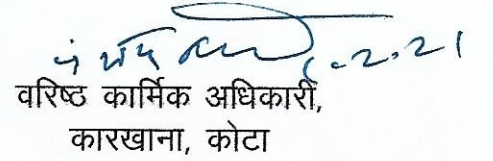 वरिष्ठ कार्मिक अधिकारी,
कारखाना, कोटा